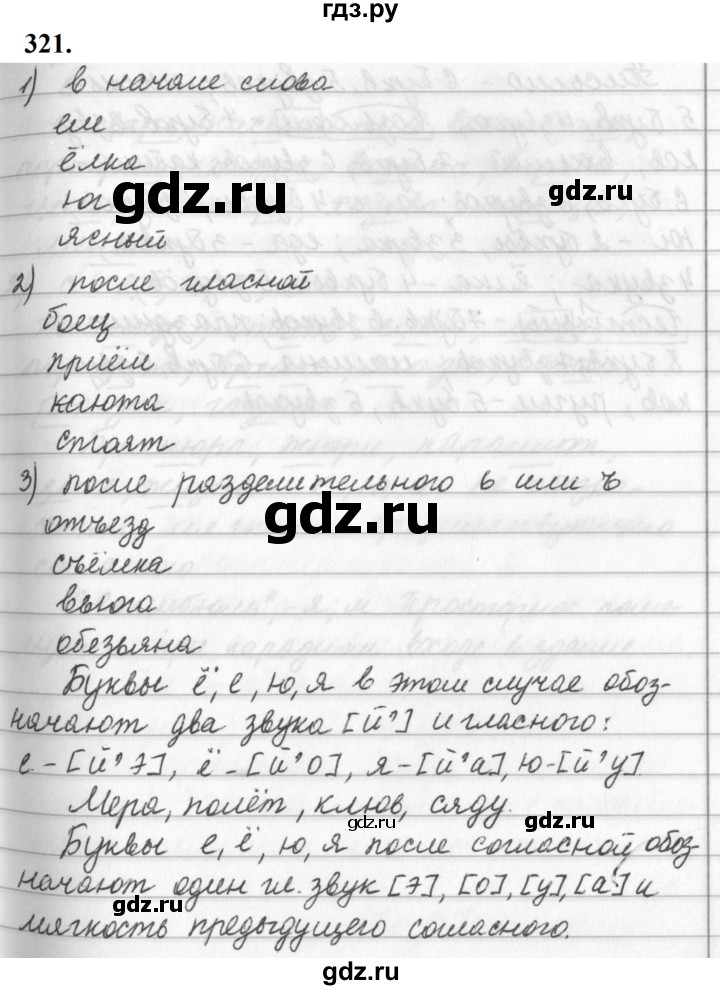 гдз.ру
321.
1) в начале слова
ем
ёлка
юг
gdz.ru
gdz.ru
ясный
2) после гласной
боец
приём
каюта
стоят
3) после разделительного ь или ъ
отъезд
gdz.ru
съёмка
вьюга
обезьяна
gdz.ru
Буквы ё, е, ю, я в этом случае обоз-
начают два звука [й'] и гласного:
е - [й'э], ё - [й'о], я - [й'а], ю - [й'у]
Мера, полёт, клюв, сяду.
gdz.ru
gdz.ru
Буквы е, ё, ю, я после согласной обоз-
начают один гл. звук [э], [о], [у], [а] и
gdz.ru
мягкость предыдущего согласного.
gdz.ru
gdz.ru